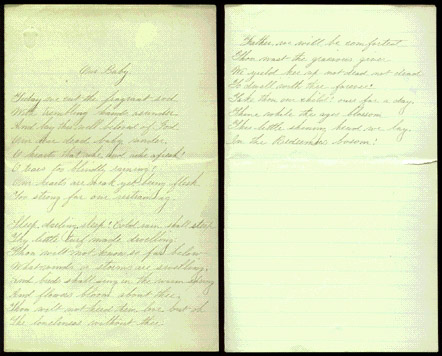 Our Baby.
Today we cut the fragrant sod,
With trembling hands asunder,
And lay this well beloved of God
Our dear dead baby under.
O hearts that ache, and ache afresh!
O tears too blindly raining!
Our hearts are weak, yet being flesh
Too strong for our restraining.
Sleep, darling, sleep! Cold rain shall steep
Thy little turf made dwelling
Thou wilt not know so far below
What winds or storms are swelling,
And birds shall sing in the warm spring
And flowers bloom about thee,
Thou wilt not heed them love but oh
The loneliness without thee.
Father we will be comforted
Thou wast the gracious giver
We yield her up not dead not dead
To dwell with thee forever
Take thou our child! ours for a day
Thine while the ages blossom
This little shining head we lay
In the Redeemer's bosom!